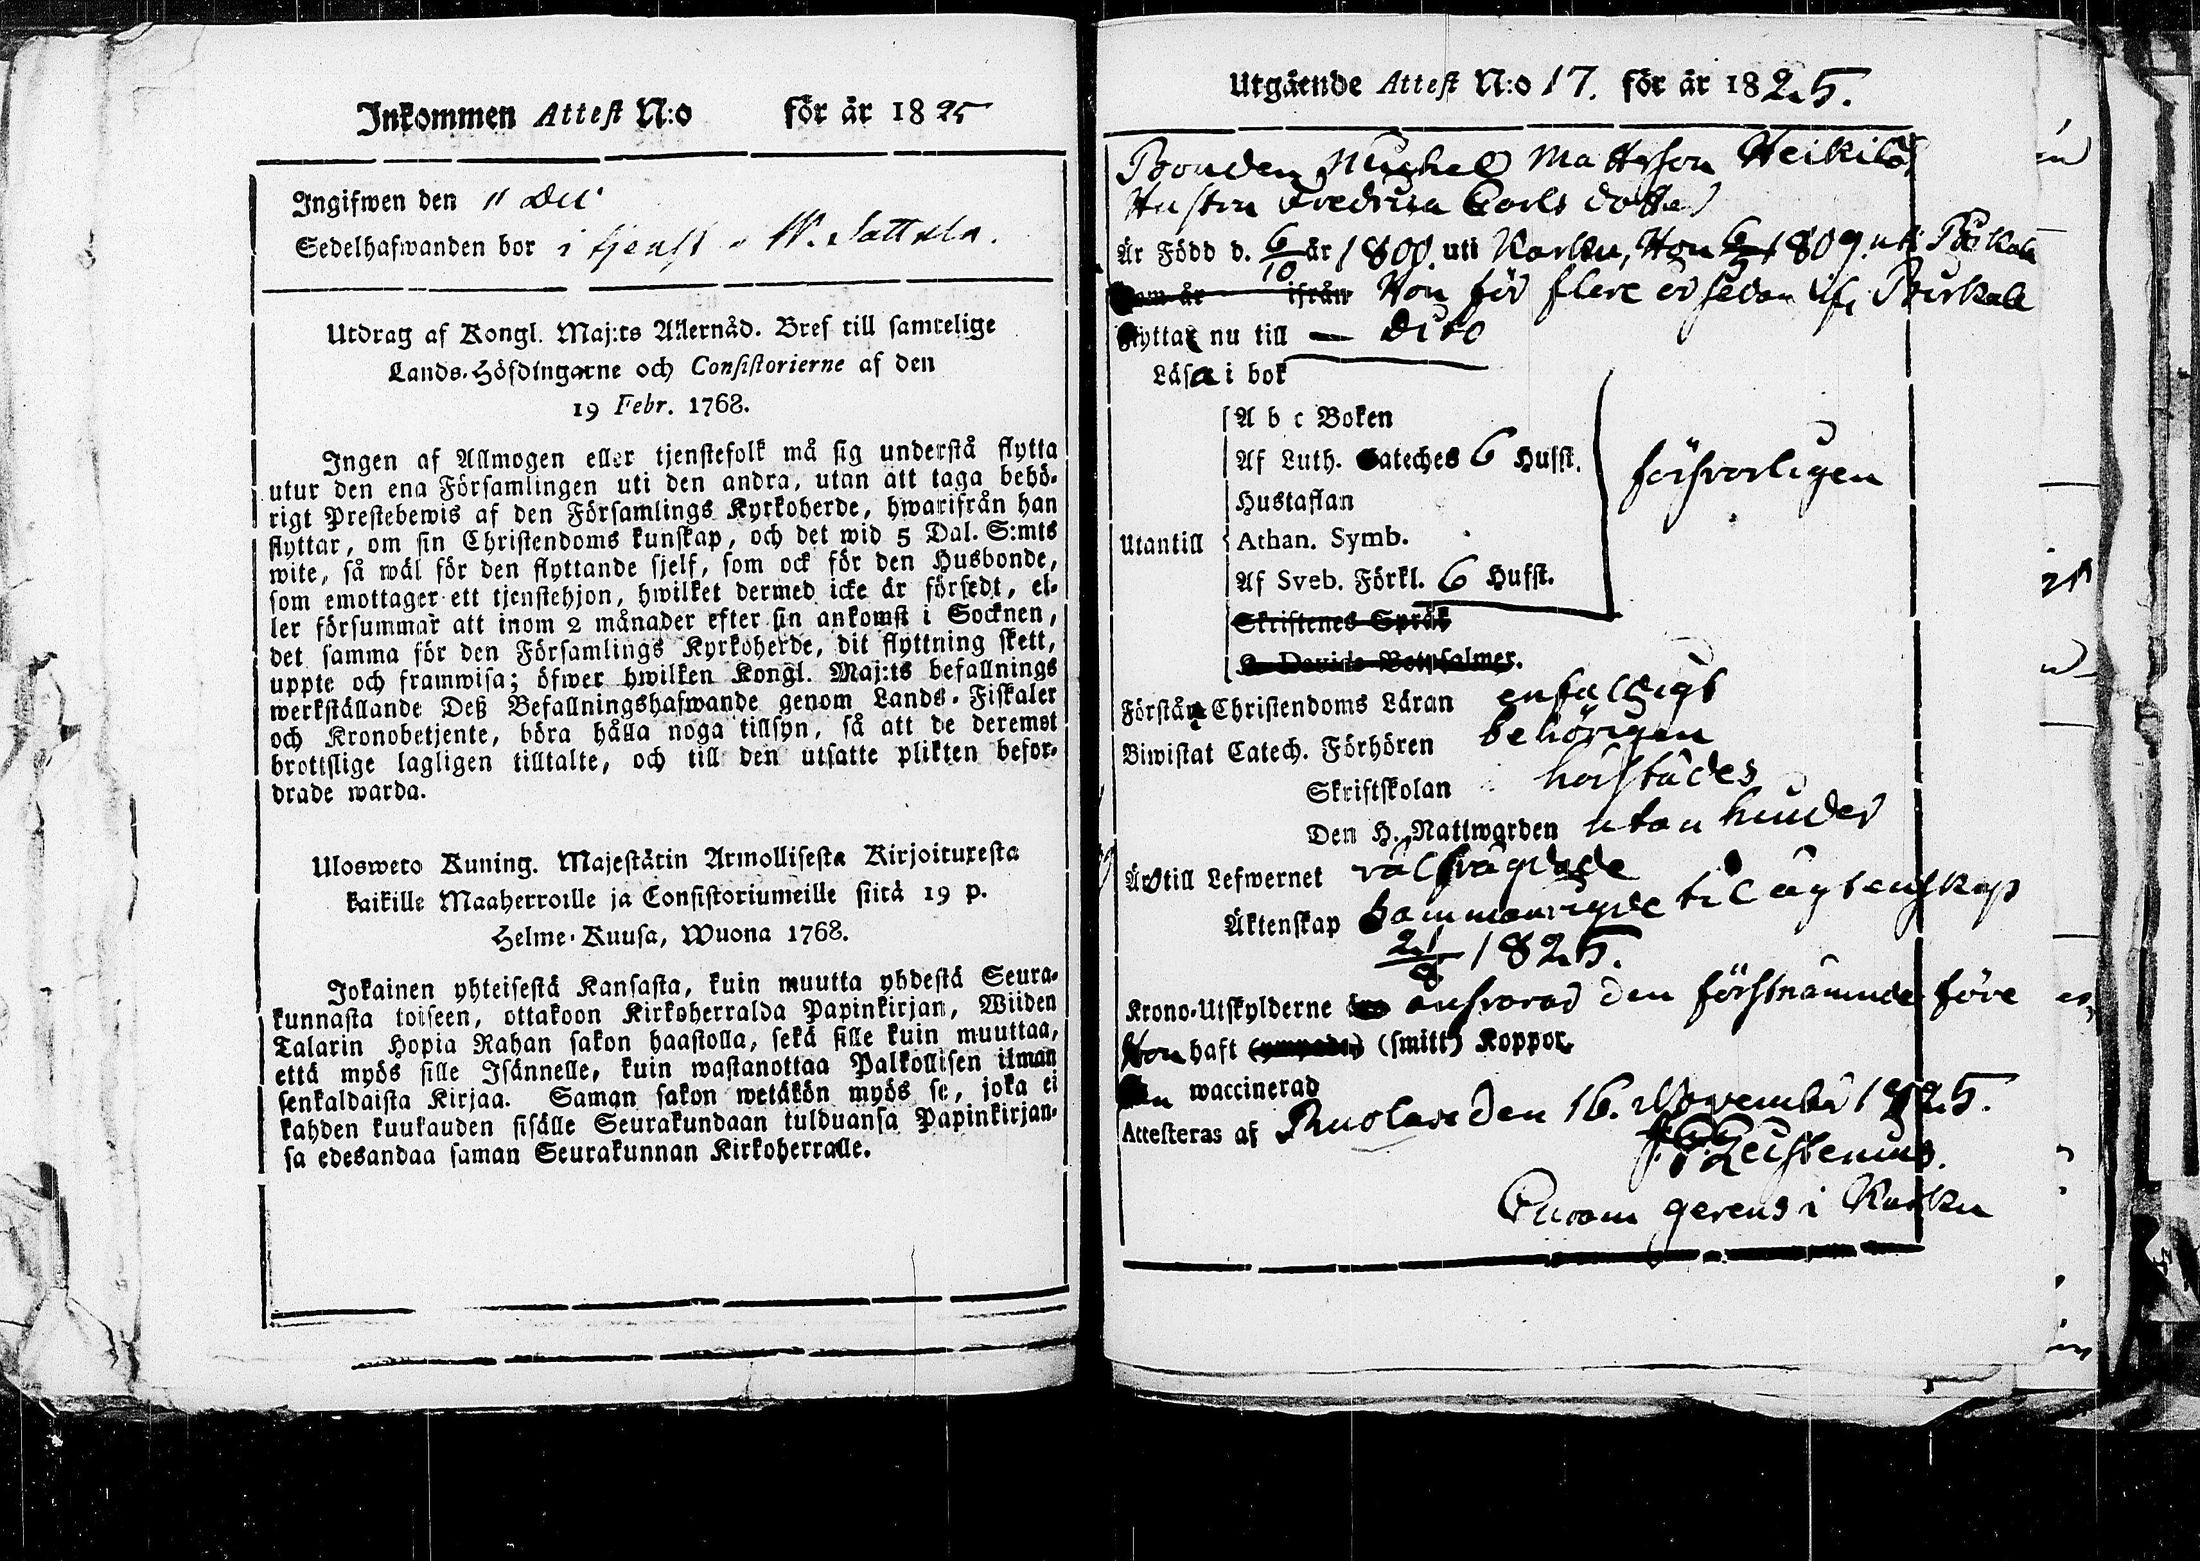 Inkommen Attest N:o för år 1825
Ingifwen den 11 Dec
Sedelhafwanden bor i tjenst W. Sattula.
Utdrag af Kongl. Maj:ts Allernåd. Bref till samtelige
Lands-Höfdingarne och Consistorierne af den
19 Febr. 1768.
Ingen af Allmogen eller tjenstefolk må sig understå flytta
utur den ena Församlingen uti den andra, utan att taga behö-
rigt Prestebewis af den Församlings Kyrkoherde, hwarifrån han
flyttar, om sin Christendoms kunskap, och det wid 5 Dal. S:mts
wite, så wäl för den flyttande sjelf, som ock för den Husbonde,
som emottager ett tjenstehjon, hwilket dermed icke är försedt, el-
ler försummar att inom 2 månader efter sin ankomst i Socknen,
det samma för den Församlings Kyrkoherde, dit flyttning skett,
uppte och framwisa; öfwer hwilken Kongl. Maj:ts befallnings
werkställande Deß Befallningshafwande genom Lands-Fiskaler
och Kronobetjente, böra hålla noga tillsyn, så att de deremot
brottslige lagligen tilltalte, och till den utsatte plikten befor-
drade warda.
Ulosweto Kuning. Majestätin Armollisesta Kirjoituxesta
kaikille Maaherroille ja Consistoriumeille siitä 19 p.
Helme-Kuusa, Wuona 1768.
Jokainen yhteisestä Kansasta, kuin muutta yhdestä Seura-
kunnasta toiseen, ottakoon Kirkoherralda Papinkirjan, Wiiden
Talarin Hopia Rahan sakon haastolla, sekä sille kuin muuttaa,
että myös sille Isännelle, kuin wastanottaa Palkollisen ilman
senkaldaista Kirjaa. Saman sakon wetäkön myös se, joka ei
kahden kuukauden sisälle Seurakundaan tulduansa Papinkirjan-
sa edesandaa saman Seurakunnan Kirkoherralle.
Utgående Attest N:o 17. för år 1825.
Bonden Michel Mattsson Heikilä
Hustru Fredrica Carls dotter
Är Född d. 6/10 år 1800. uti Karku, Hon 1809. uti Birkala
Kom år ifrån Hon för flere år sedan ifr. Birkala
flyttar nu till — dito
Läsa i bok
A b c Boken
Af Luth. Cateches 6 Hufst.
Hustaflan
försvarligen
Utantill Athan. Symb.
Af Sveb. Förkl. 6 Hufst.
Skriftenes Språk
K. Davids Botpsalmer.
Förstår Christendoms Läran enfaldigt
Biwistat Catech. Förhören behörigen
Skriftskolan härstädes
Den H. Nattwarden utan hinder
Är till Lefwernet välfrägdade
Äktenskap sammanvigde til ägtenskap
21/8 1825.
Krono-Utskylderne ansvarar den förstnämnde före
Hon haft (ympade) (smitt) Koppor
waccinerad
Attesteras af den 16. November 1825.
Leistenius.
Curam gerens i Karku